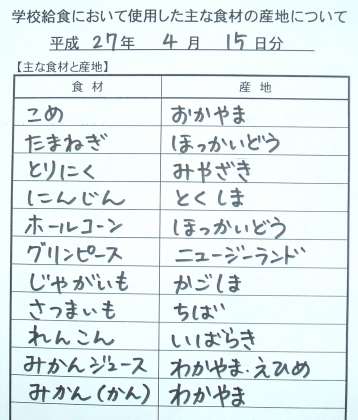 学校給食において使用した主な食材の産地について
平成 27年 4月 15日分
【主な食材と産地】
食材 産地
こめ おかやま
たまねぎ ほっかいどう
とりにく みやざき
にんじん とくしま
ホールコーン ほっかいどう
グリンピース ニュージーランド
じゃがいも かごしま
さつまいも ちば
れんこん いばらき
みかんジュース わかやま・えひめ
みかん(かん) わかやま